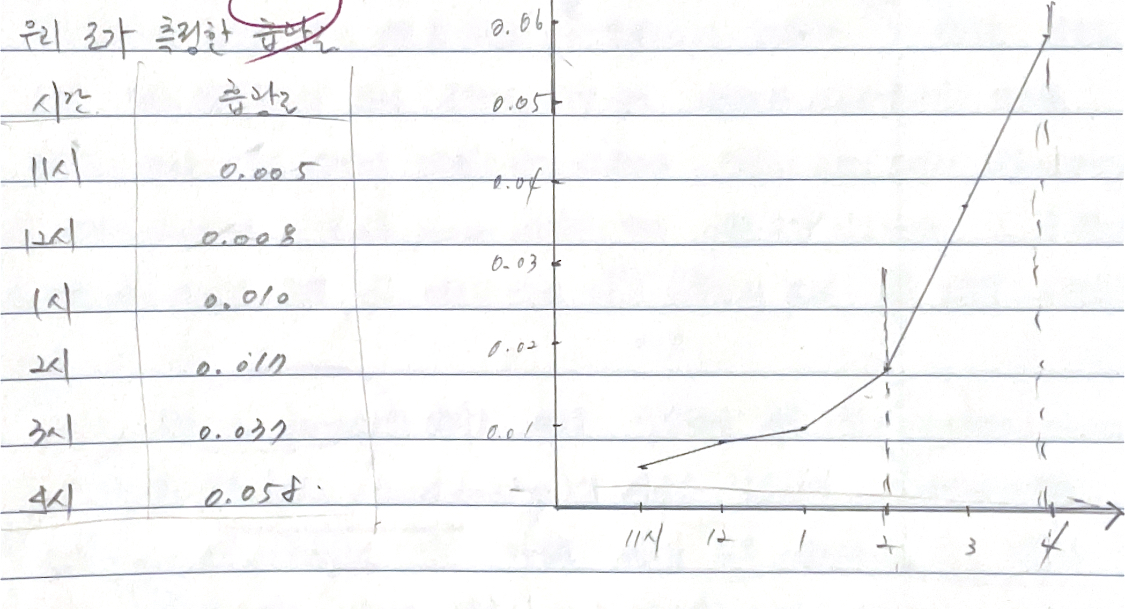 우리 조가 측정한 흡광도
시간 흡광도
11시 0.005
12시 0.008
1시 0.010
2시 0.017
3시 0.037
4시 0.058
0.06
0.05
0.04
0.03
0.02
0.01
11시 12 1 2 3 4